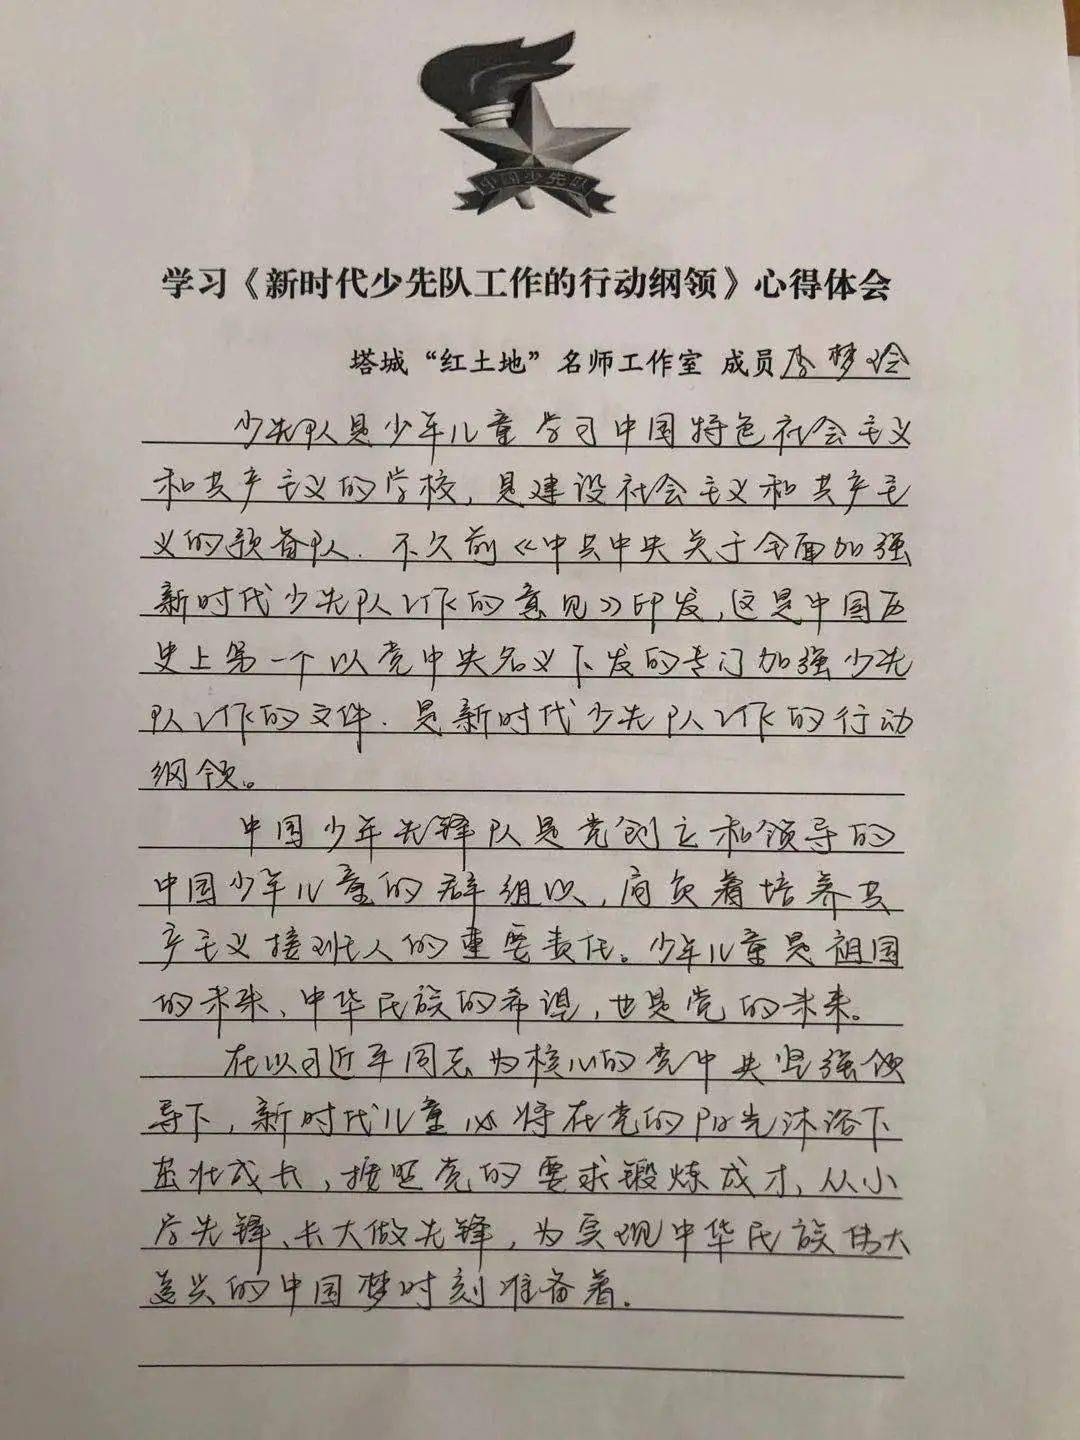 中国少先队
学习《新时代少先队工作的行动纲领》心得体会
塔城“红土地”名师工作室 成员李梦玲
少先队是少年儿童学习中国特色社会主义
和共产主义的学校，是建设社会主义和共产主
义的预备队.不久前《中共中央关于全面加强
新时代少先队工作的意见》印发,这是中国历
史上第一个以党中央名义下发的专门加强少先
队工作的文件.是新时代少先队工作的行动
纲领。
中国少年先锋队是党创立和领导的
中国少年儿童的群组织,肩负着培养共
产主义接班人的重要责任。少年儿童是祖国
的未来、中华民族的希望,也是党的未来。
在以习近平同志为核心的党中央坚强领
导下,新时代儿童必将在党的阳光沐浴下
茁壮成长,按照党的要求锻炼成才、从小
学先锋、长大做先锋,为实现中华民族伟大
复兴的中国梦时刻准备着.